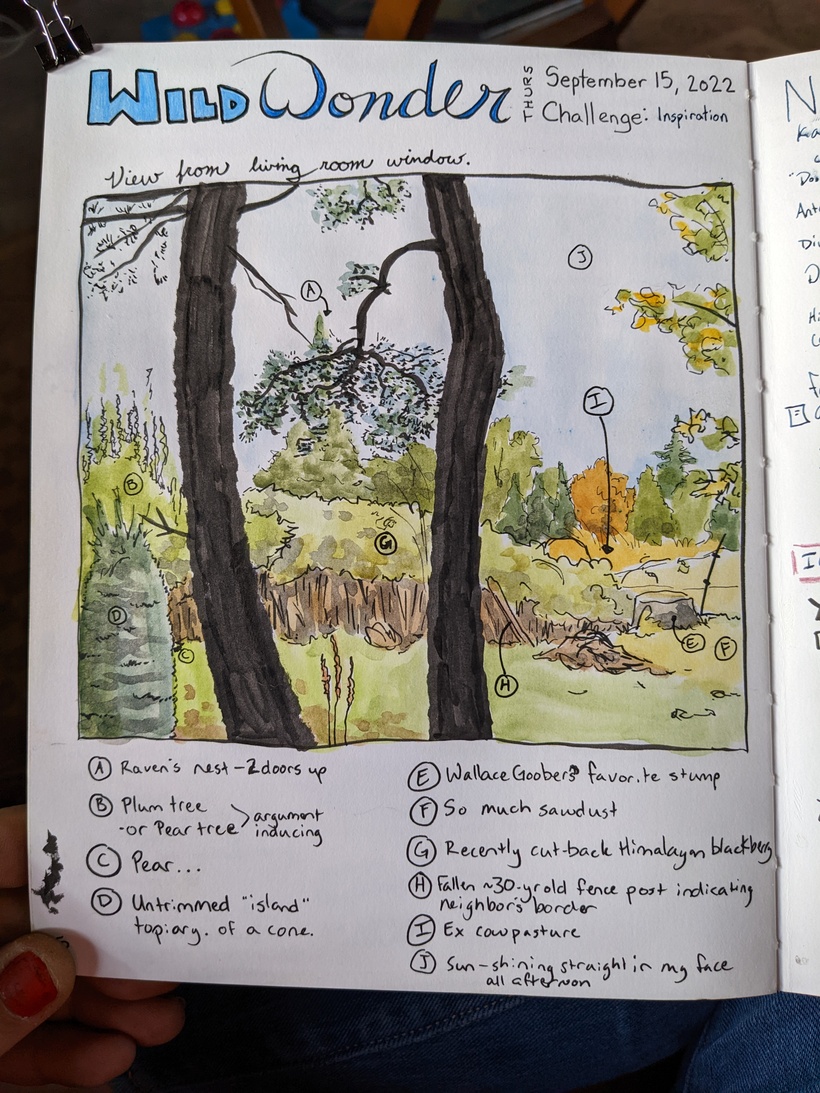 WILD Wonder
THURS
September 15, 2022
Challenge: Inspiration
View from living room window.
A
J
I
B
G
D
C
E
F
H
A Raven's nest - 2 doors up
B Plum tree
-or Pear tree > argument inducing
C Pear...
D Untrimmed "island"
topiary. of a cone.
E Wallace Goober's favorite stump
F So much sawdust
G Recently cut-back Himalayan blackberry
H Fallen ~30-yr old fence post indicating
neighbor's border
I Ex cow pasture
J Sun-shining straight in my face
all afternoon